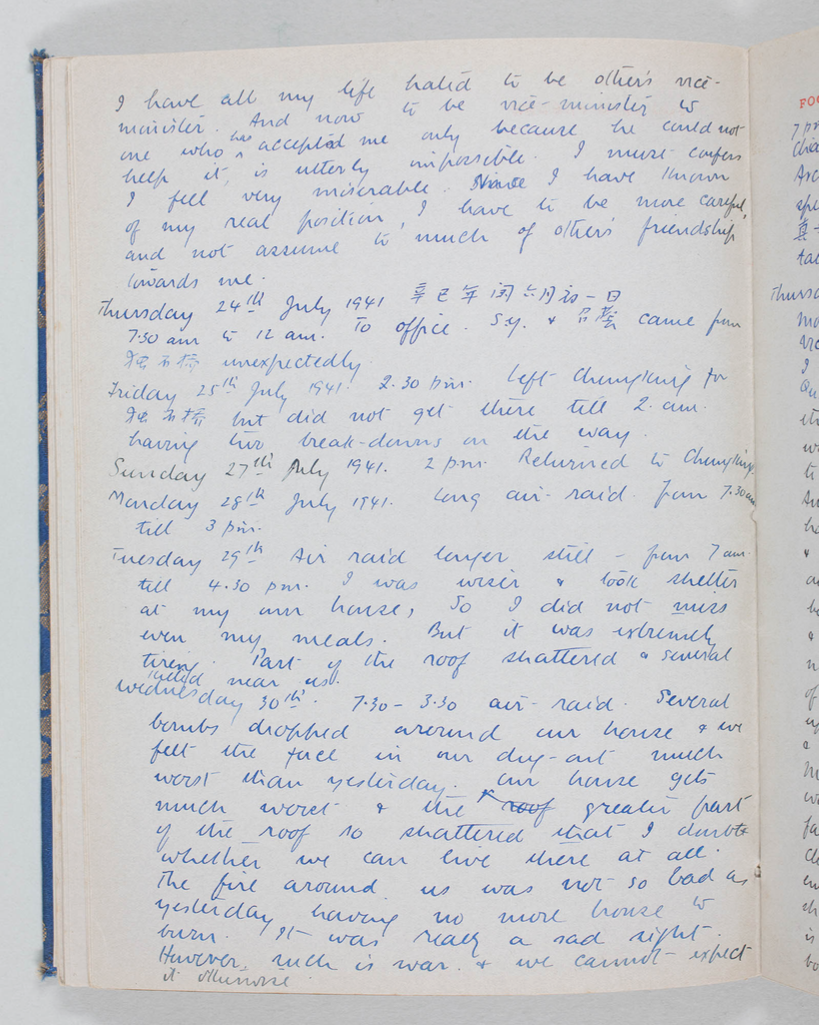 I have all my life hated to be other's vice-
minister. And now to be vice-minister to
one who has accepted me only because he could not
help it, is utterly impossible. I must confess
I feel very miserable. Since I have known
of my real position, I have to be more careful,
and not assume to much of other's friendship
towards me.
Thursday 24th July 1941 辛巳年閏六月初一日
7.30 am to 12 am. To office. S.y. & came from
石桥 unexpectedly.
Friday 25th July 1941. 2.30 p.m. Left Chungking for
石桥 but did not get there till 2. am.
having two break-downs on the way.
Sunday 27th July 1941. 2 p.m. Returned to Chungking.
Monday 28th July 1941. Long air-raid. from 7.30 am
till 3 p.m.
Tuesday 29th Air raid longer still – from 7 am.
till 4.30 pm. I was wiser & took shelter
at my own house, So I did not miss
even my meals. But it was extremely
tiring. Part of the roof shattered & several
near us.
Wednesday 30th. 7.30 – 3.30 air-raid. Several
bombs dropped around our house & we
felt the in our dug-out much
worst than yesterday. Our house gets
much worst & the roof greater part
of the roof so shattered that I doubt
whether we can live there at all.
The fire around us was not so bad as
yesterday having no more house to
burn. It was really a sad sight.
However, such is war. & we cannot expect
it otherwise.
FOO
7 pm
Thursd